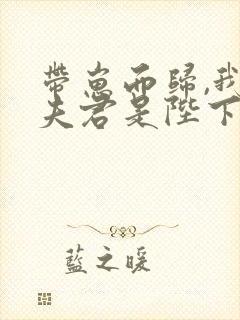 帶崽而歸,我
夫君是陛下
藍之暖